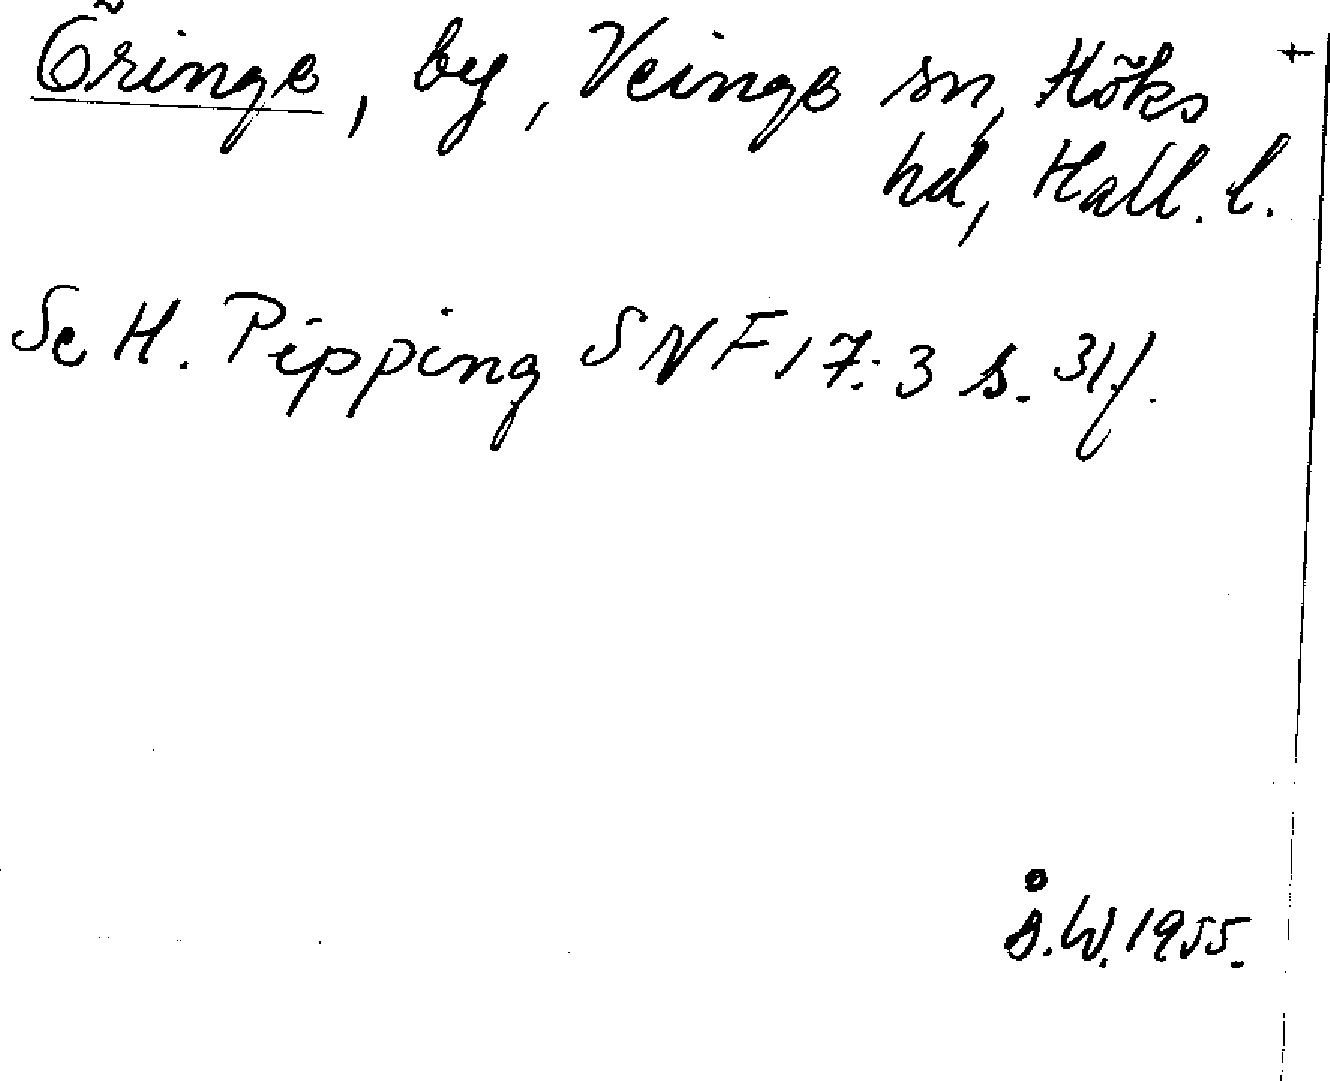 Öringe, by, Veinge sn, Höks +
hd, Hall. l.
Se H. Pipping SNF 17:3 s. 31f.
Å.W. 1955.